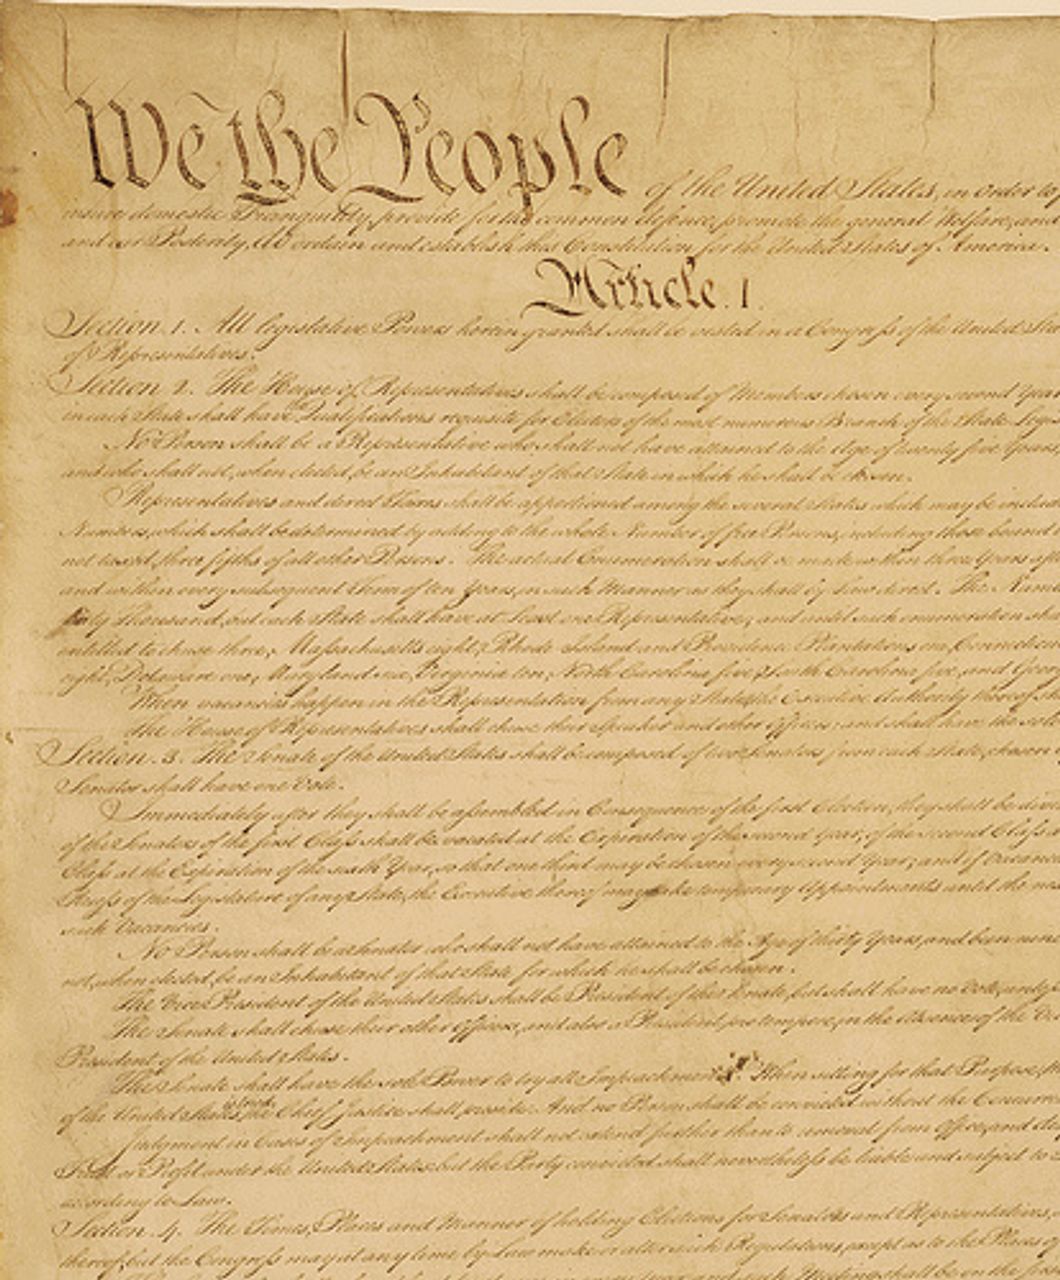 We the People of the United States, in Order to
insure domestic Tranquility, provide for the common defence, promote the general Welfare, and
and our Posterity, do ordain and establish this Constitution for the United States of America.
Article. I.
Section. 1. All legislative Powers herein granted shall be vested in a Congress of the United Sta
of Representatives.
Section. 2. The House of Representatives shall be composed of Members chosen every second Year
in each State shall have Qualifications requisite for Electors of the most numerous Branch of the State Legi
No Person shall be a Representative who shall not have attained to the Age of twenty five Years,
and who shall not, when elected, be an Inhabitant of that State in which he shall be chosen.
Representatives and direct Taxes shall be apportioned among the several States which may be includ
Numbers, which shall be determined by adding to the whole Number of free Persons, including those bound
not taxed, three fifths of all other Persons. The actual Enumeration shall be made within three Years aft
and within every subsequent Term of ten Years, in such Manner as they shall by Law direct. The Num
thirty Thousand, but each State shall have at Least one Representative; and until such enumeration sha
entitled to chuse three, Massachusetts eight, Rhode Island and Providence Plantations one, Connecticut
eight, Delaware one, Maryland six, Virginia ten, North Carolina five, South Carolina five, and Geor
When vacancies happen in the Representation from any State, the Executive Authority thereof
The House of Representatives shall chuse their Speaker and other Officers; and shall have the sole
Section. 3. The Senate of the United States shall be composed of two Senators from each State, chosen
Senator shall have one Vote.
Immediately after they shall be assembled in Consequence of the first Election, they shall be divi
of the Senators of the first Class shall be vacated at the Expiration of the second Year, of the second Class
Class at the Expiration of the sixth Year, so that one third may be chosen every second Year; and if Vacanci
Recess of the Legislature of any State, the Executive thereof may make temporary Appointments until the ne
such Vacancies.
No Person shall be a Senator who shall not have attained to the Age of thirty Years, and been nine
not, when elected, be an Inhabitant of that State for which he shall be chosen.
The Vice President of the United States shall be President of the Senate, but shall have no Vote, unless
The Senate shall chuse their other Officers, and also a President pro tempore, in the Absence of the Vic
President of the United States.
The Senate shall have the sole Power to try all Impeachments. When sitting for that Purpose, th
of the United States is tried, the Chief Justice shall preside: And no Person shall be convicted without the Concurre
Judgment in Cases of Impeachment shall not extend further than to removal from Office, and dis
Trust or Profit under the United States: but the Party convicted shall nevertheless be liable and subject to
according to Law.
Section. 4. The Times, Places and Manner of holding Elections for Senators and Representatives,
thereof; but the Congress may at any time by Law make or alter such Regulations, except as to the Places of